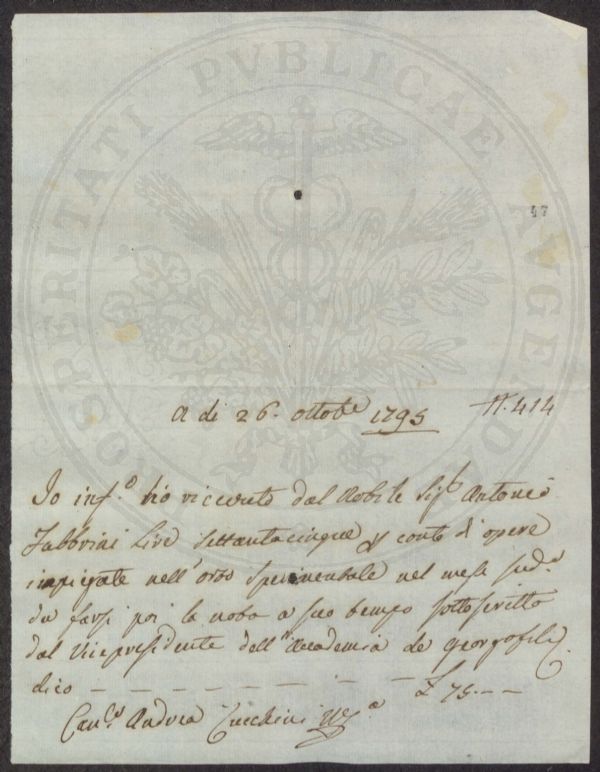 PROSPERITATI PVBLICAE AVGENDAE
47
A di 26. ottobe 1795 N. 414
Io inf.o hò riceuto dal Nobile Sig.r Antonio
Fabbrini Lire settantacinque p conto di opere
impiegate nell'orto sperimentale nel mese sud.o
da farsi poi la nota a suo tempo sottoscritta
dal Vicepresidente dell'Accademia de georgofili
dico — — — — — — — — £ 75. — —
Can.co Andrea Zucchini